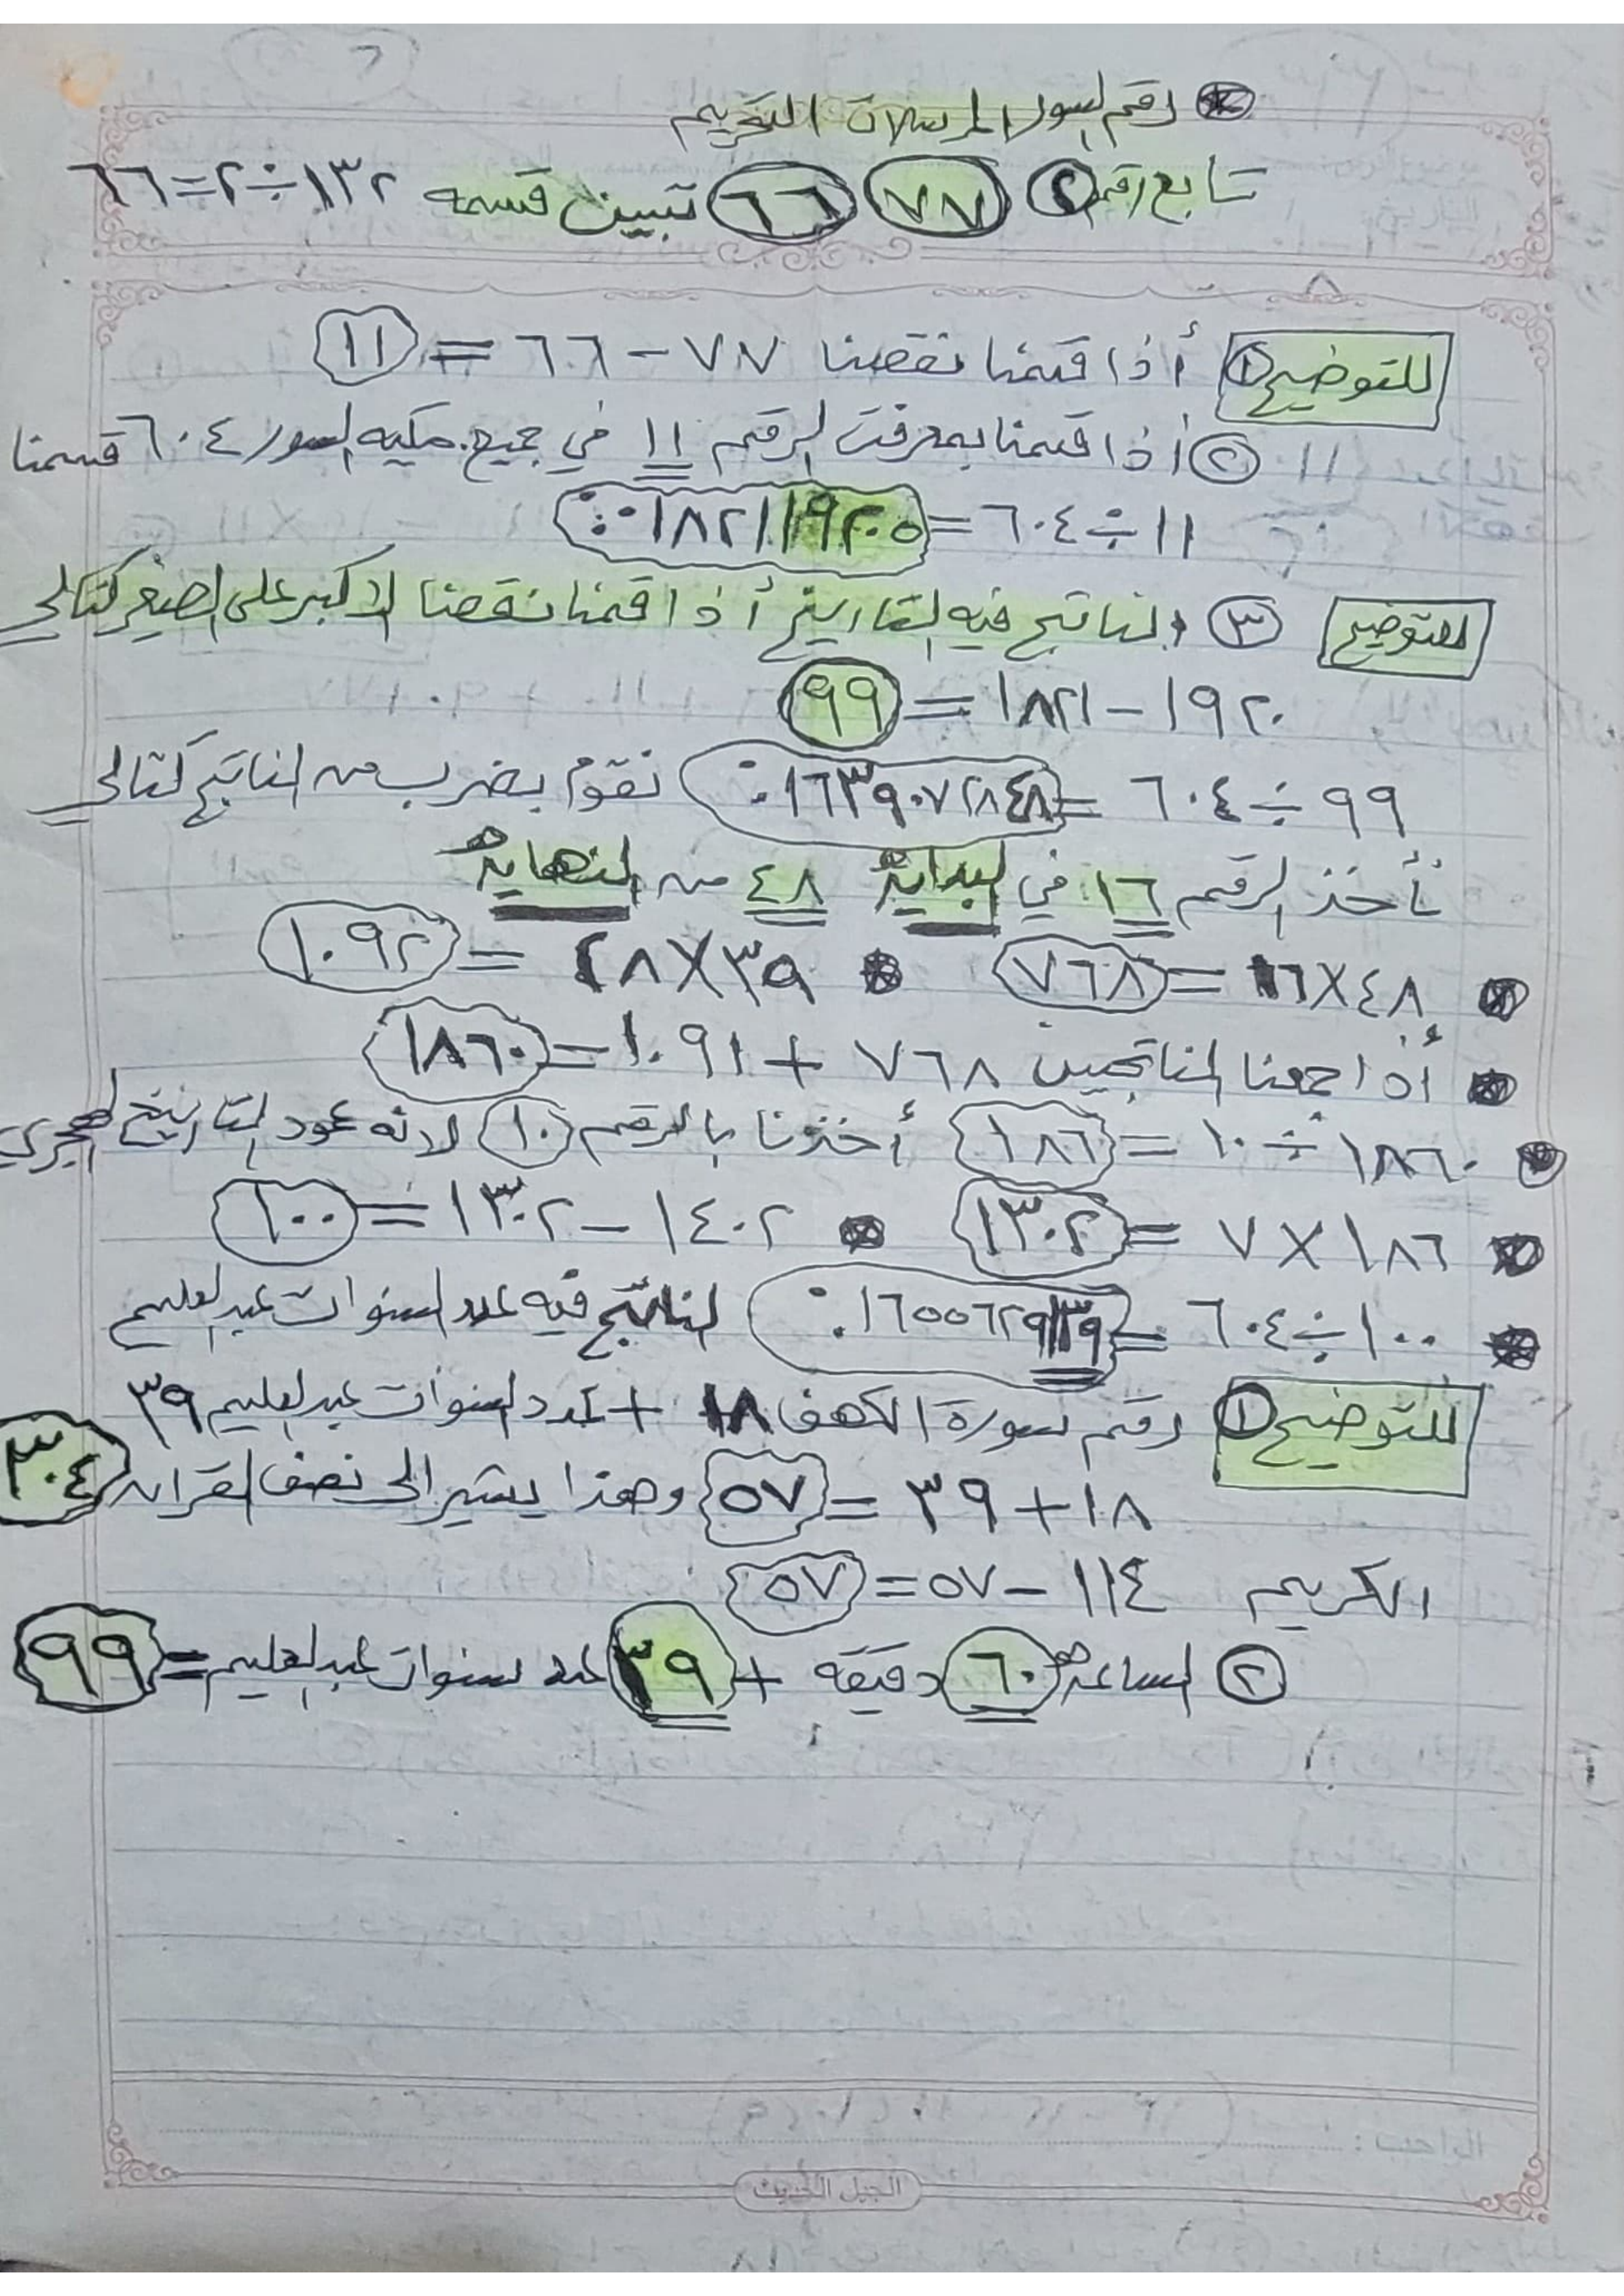 رقم السور المرسلات التحريم
تابع رقم ٢ ٧٧ ٦٦ تبين قسمه ١٣٢÷٢=٦٦
للتوضيح ١ أذا قمنا نقصنا ٧٧-٦٦=١١
٢ أذا قمنا بمعرفت الرقم ١١ في جميع مكيه السور ٦٠٤ قسمنا
١١÷٦٠٤=٠.٠١٨٢١١٩٢٠٥
للتوضيح ٣ الناتج فيه التاريخ أذا قمنا نقصنا الاكبر على الصغير كتالي
١٩٢٠-١٨٢١=٩٩
٩٩÷٦٠٤=٠.١٦٣٩٠٧٢٨٤٨ نقوم بضرب من الناتج كتالي
نأخذ الرقم ١٦ في البداية ٤٨ من النهاية
١٦×٤٨=٧٦٨ ٢٨×٣٩=١٠٩٢
أذا جمعنا الناتجين ٧٦٨+١٠٩١=١٨٦٠
١٨٦٠÷١٠=١٨٦ أخذنا بالرقم ١٠ لانه عمود التاريخ الهجري
٧×١٨٦=١٣٠٢ ١٤٠٢-١٣٠٢=١٠٠
١٠٠÷٦٠٤=٠.١٦٥٥٦٢٩١٣٩ الناتج فيه عدد السنوات عبدالعليم
للتوضيح ١ رقم سورة الكهف ١٨ + عدد السنوات عبدالعليم ٣٩
١٨+٣٩=٥٧ وهذا يشير الى نصف القران ٣٠٤
الكريم ١١٤-٥٧=٥٧
٢ الساعة ٦٠ دقيقه + ٣٩ عدد سنوات عبدالعليم=٩٩
الجيل الحديث